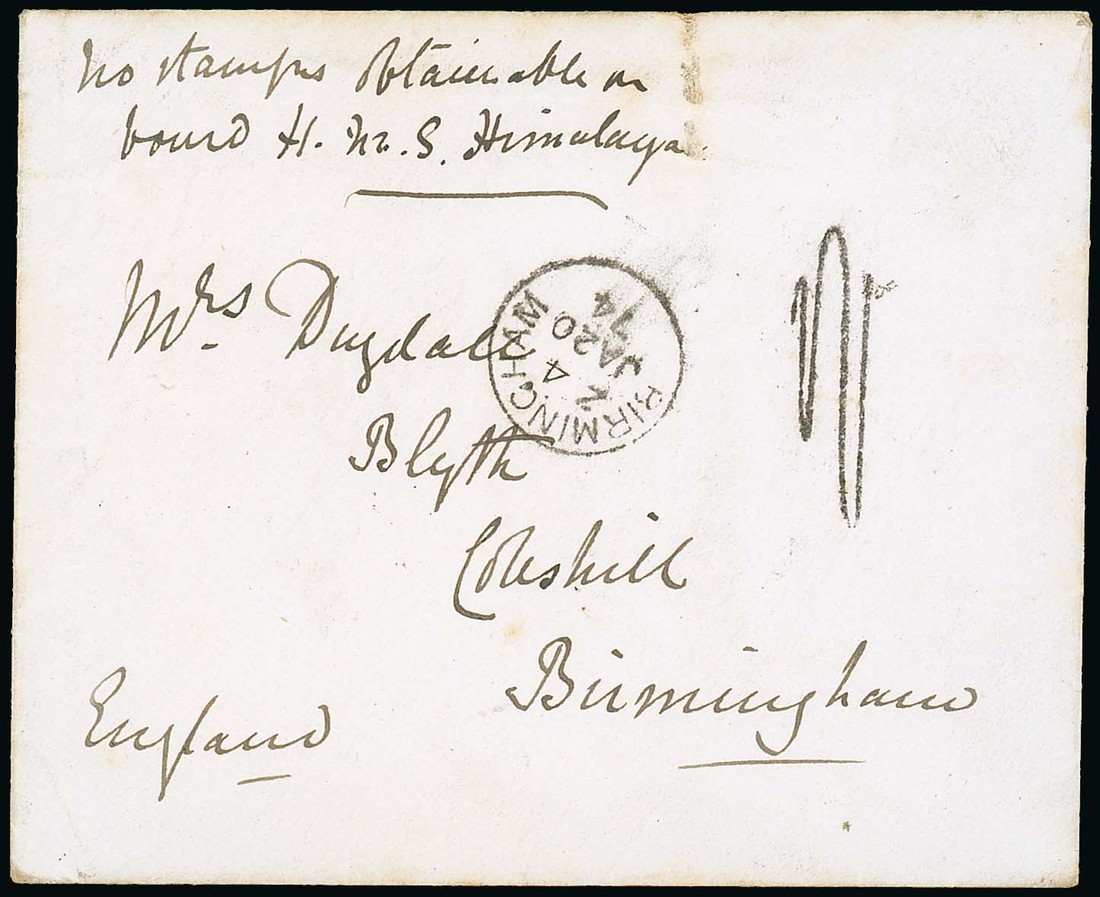 No stamps obtainable on
board H.M.S. Himalaya
Mrs Dugdale
Blyth
Coleshill
Birmingham
England
BIRMINGHAM
Z
4
JA 20
74